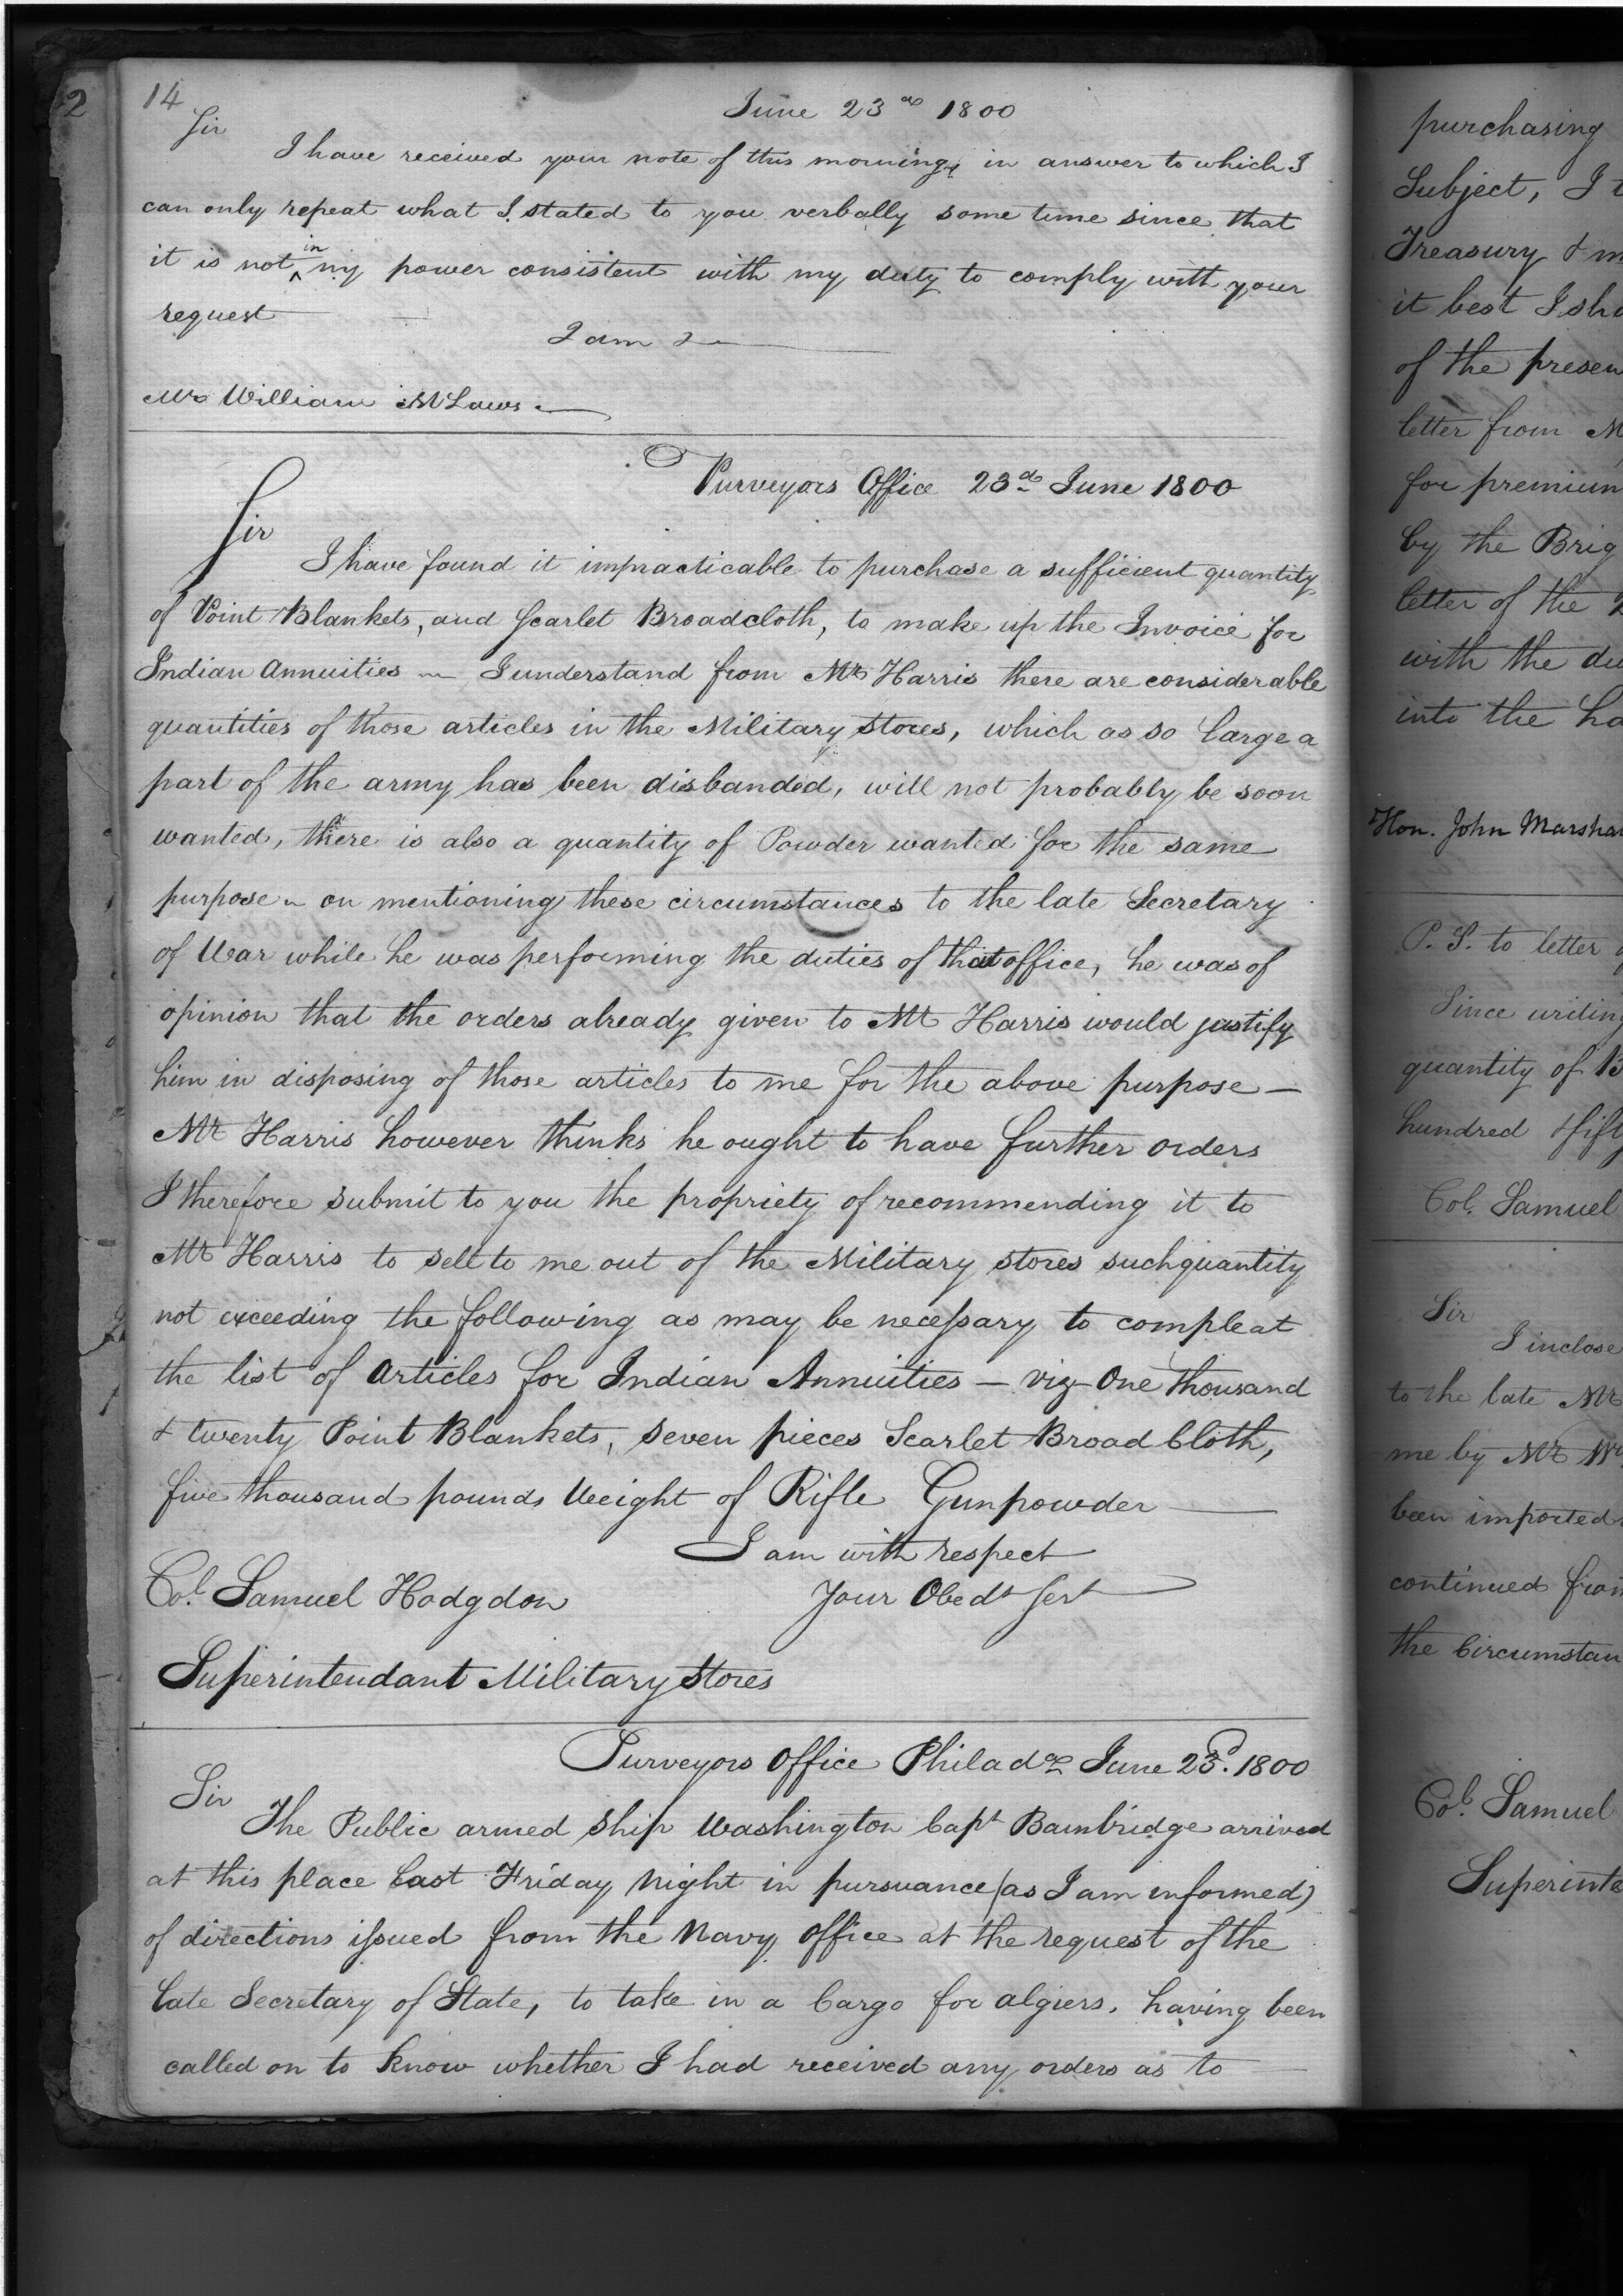 14
June 23d 1800
Sir
I have received your note of this morning, in answer to which I
can only repeat what I stated to you verbally some time since that
it is not in my power consistent with my duty to comply with your
request
I am &
Mr William McLaws
Purveyors Office 23d June 1800
Sir
I have found it impracticable to purchase a sufficient quantity
of Point Blankets, and Scarlet Broadcloth, to make up the Invoice for
Indian Annuities — I understand from Mr Harris there are considerable
quantities of those articles in the Military Stores, which as so large a
part of the army has been disbanded, will not probably be soon
wanted, there is also a quantity of Powder wanted for the same
purpose — on mentioning these circumstances to the late Secretary
of War while he was performing the duties of that office, he was of
opinion that the orders already given to Mr Harris would justify
him in disposing of those articles to me for the above purpose —
Mr Harris however thinks he ought to have further orders
I therefore submit to you the propriety of recommending it to
Mr Harris to sell to me out of the Military stores such quantity
not exceeding the following as may be necessary to compleat
the list of Articles for Indian Annuities — viz One thousand
& twenty Point Blankets, seven pieces Scarlet Broad Cloth,
five thousand pounds Weight of Rifle Gunpowder
I am with respect
Your Obedt Sert
Col. Samuel Hodgdon
Superintendant Military Stores
Purveyors Office Philada June 23d. 1800
Sir
The Public armed Ship Washington Capt Bambridge arrived
at this place last Friday Night in pursuance (as I am informed)
of directions issued from the Navy Office at the request of the
late Secretary of State, to take in a Cargo for algiers, having been
called on to know whether I had received any orders as to
2
purchasing
Subject, I
Treasury &
it best I sh
of the presen
letter from M
for premium
by the Brig
letter of the
with the du
into the ha
Hon. John Marshal
P. S. to letter
Since writing
quantity of B
hundred & fifty
Col. Samuel
Sir
I inclose
to the late Mr
me by Mr Wm
been imported
continued from
the Circumstan
Col. Samuel
Superinte